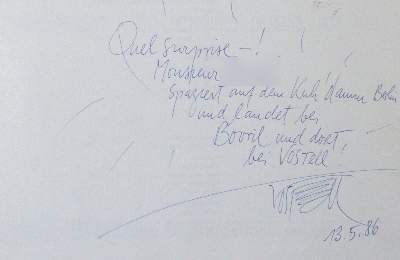 Quel surprise —!
Monsieur
spaziert auf dem Kuh'damm Berlin
und landet bei
Bovril und dort,
bei Vostell
Vostell
13.5.86